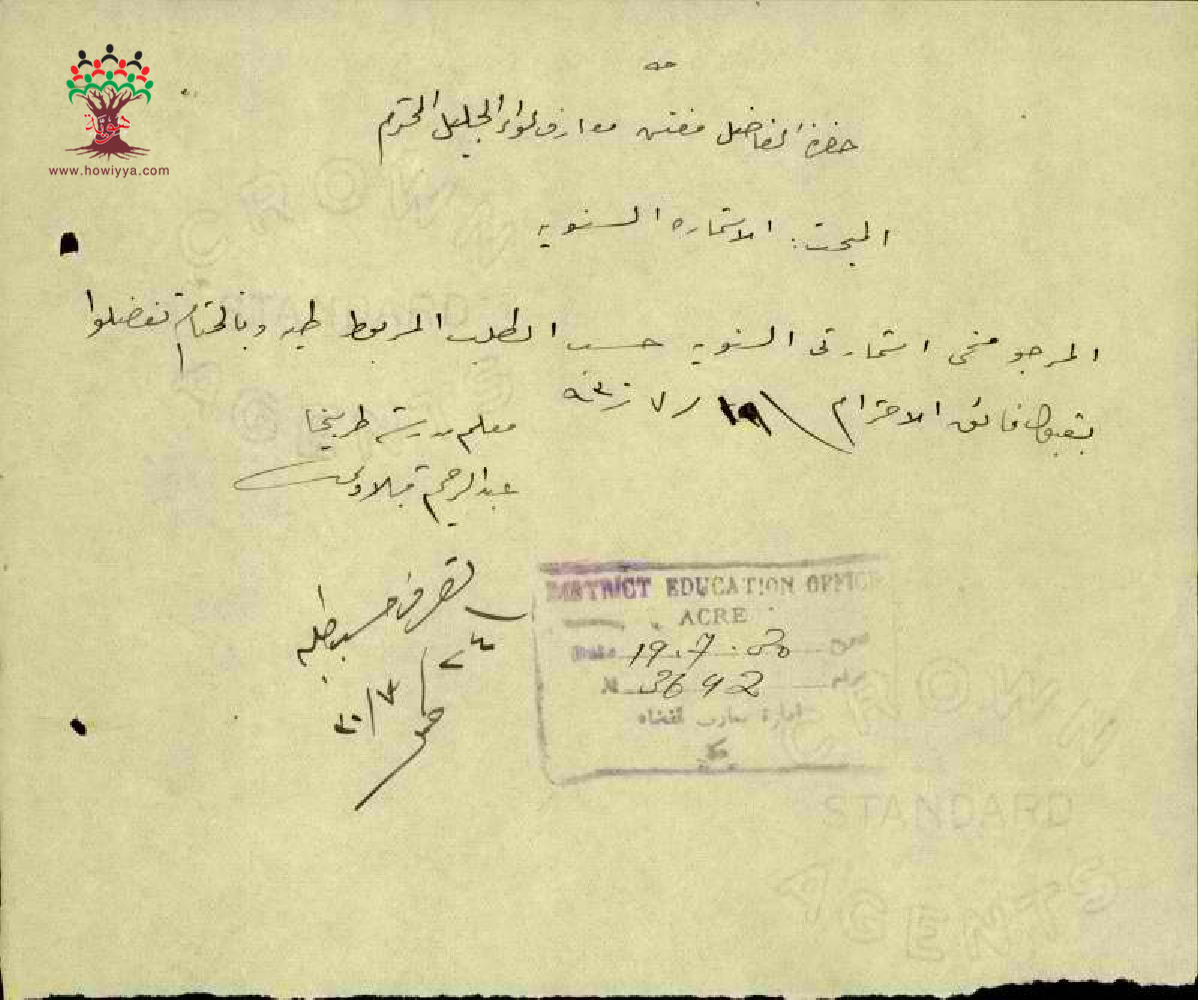 هوية
www.howiyya.com
حضرة الفاضل مفتش معارف لواء الجليل المحترم
المبحث: الاستمارة السنوية
المرجو منحي استمارتي السنوية حسب الطلب المربوط طيه وبالختام تفضلوا
بقبول فائق الاحترام ١٩/٧/٩٣٠
معلم مدرسة طربيخا
عبد الرحيم
تصرف حسب طلبه
٣٠/٧/٢٤
DISTRICT EDUCATION OFFICE
ACRE
Date 19.7.30
№ 3692
ادارة معارف القضاء
عكا
CROWN
STANDARD
AGENTS
CROWN
STANDARD
AGENTS